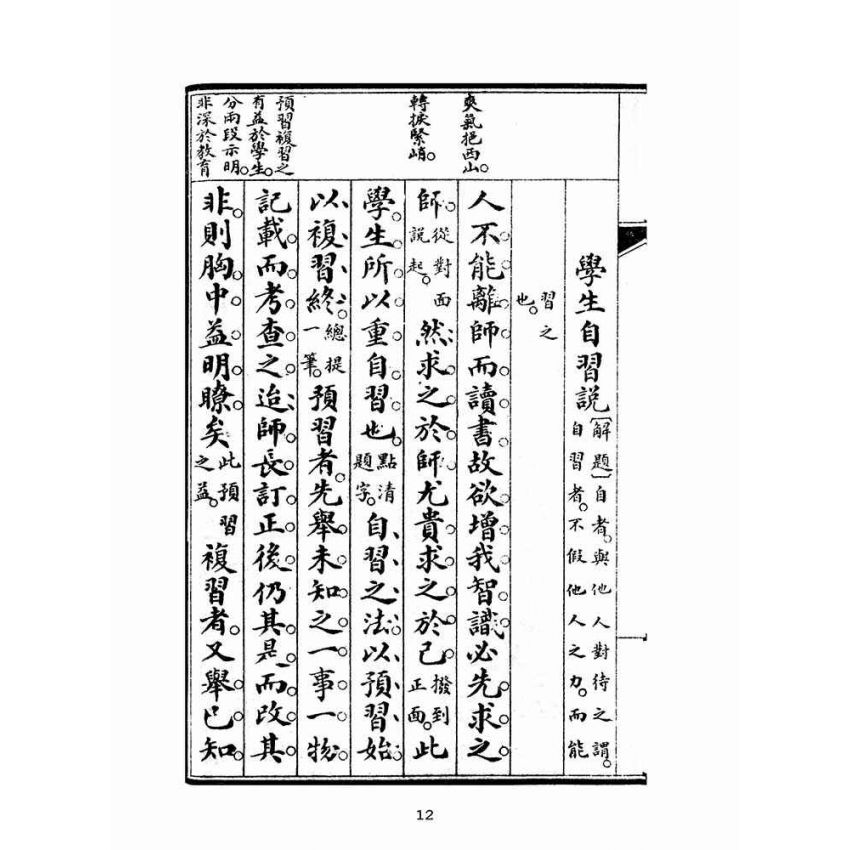 學生自習說〔解題〕自者。與他人對待之謂。
自習者。不假他人之力。而能
習之
也。
爽氣挹西山。
人不能離師而讀書故欲增我智識必先求之
轉捩緊峭。
師。從對面說起。然求之於師尤貴求之於己撥到正面。此
學生所以重自習也。點清題字。自習之法以預習始
以複習終。總提一筆。預習者。先舉未知之一事一物
預習複習之
有益於學生。
分兩段示明。
非深於教育
記載而考查之迨師長訂正後仍其是而改其
非則胸中益明瞭矣此預習之益。複習者。又舉已知
12